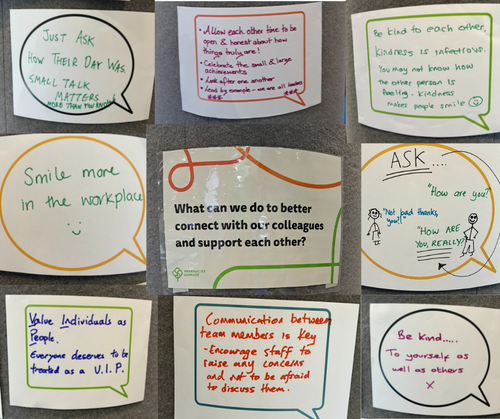 JUST ASK
HOW THEIR DAY WAS.
SMALL TALK
MATTERS
MORE THAN YOU KNOW
• Allow each other time to be
open & honest about how
things truly are!
• Celebrate the small & large
achievements
• Look after one another
• Lead by example - we are all leaders
***
Be kind to each other.
Kindness is infectious.
You may not know how
the other person is
feeling. Kindness
makes people smile ☺
Smile more
in the workplace
What can we do to better
connect with our colleagues
and support each other?
ASK....
"How are you?"
"Not bad thanks,
you?"
"HOW ARE
YOU, REALLY?"
Value Individuals as
People.
Everyone deserves to be
treated as a V.I.P.
Communication between
team members is Key
- Encourage staff to
raise any concerns
and not to be afraid
to discuss them.
Be kind.....
To yourself as
well as others
X